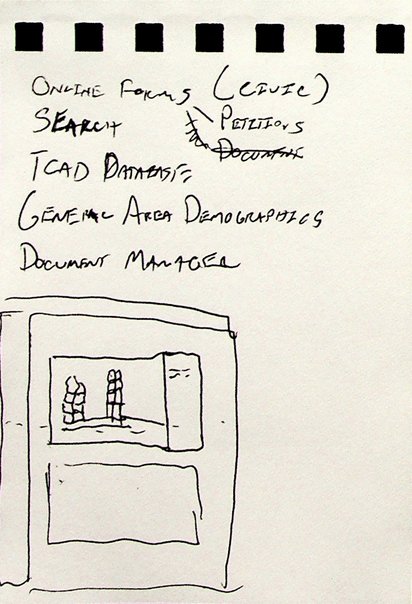 Online Forms (Civic)
Search
Petitions
Document
TCAD Database
General Area Demographics
Document Manager